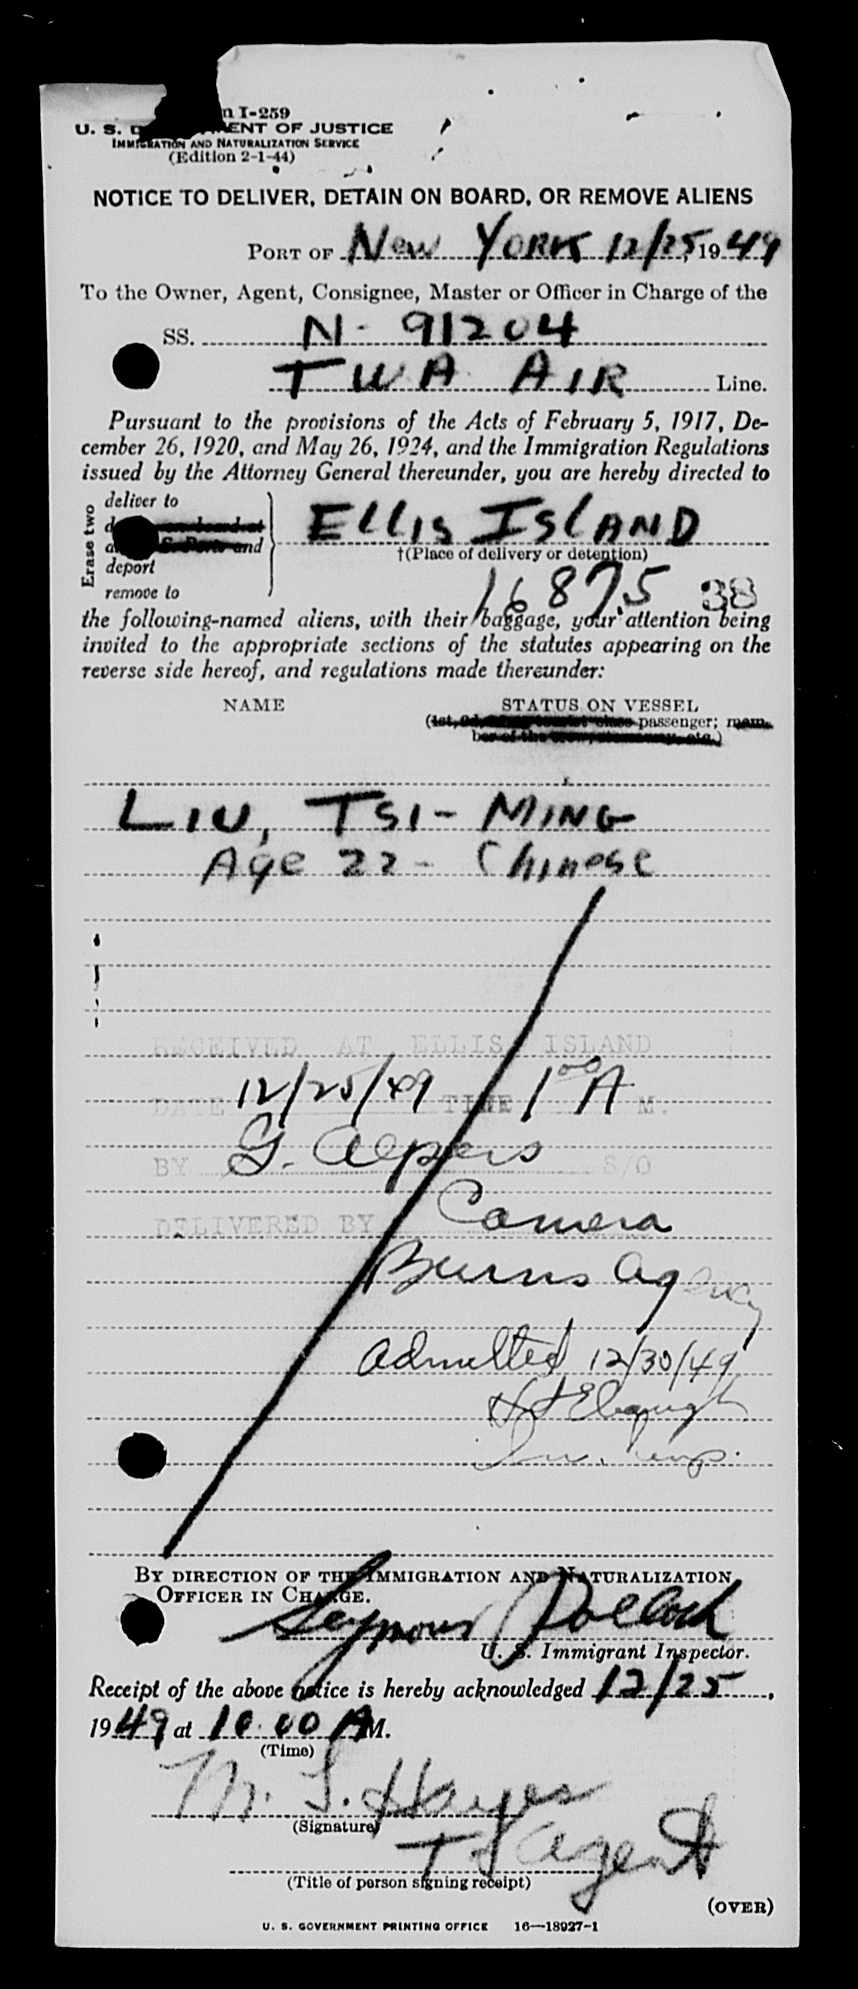 I-259
U. S. DEPARTMENT OF JUSTICE
IMMIGRATION AND NATURALIZATION SERVICE
(Edition 2-1-44)
NOTICE TO DELIVER, DETAIN ON BOARD, OR REMOVE ALIENS
PORT OF New YORK 12/25, 1949
To the Owner, Agent, Consignee, Master or Officer in Charge of the
SS. N-91204
TWA AIR Line.
Pursuant to the provisions of the Acts of February 5, 1917, De-
cember 26, 1920, and May 26, 1924, and the Immigration Regulations
issued by the Attorney General thereunder, you are hereby directed to
Erase two
deliver to
and
deport
remove to
ELLIS ISLAND
†(Place of delivery or detention)
16875 38
the following-named aliens, with their baggage, your attention being
invited to the appropriate sections of the statutes appearing on the
reverse side hereof, and regulations made thereunder:
NAME STATUS ON VESSEL
passenger; mem-
LIU, TSI-MING
Age 22 - Chinese
RECEIVED AT ELLIS ISLAND
DATE 12/25/49 TIME 1 00 A M.
BY G. Alpers S/O
DELIVERED BY Camera
Burns Agency
Admitted 12/30/49
BY DIRECTION OF THE IMMIGRATION AND NATURALIZATION
OFFICER IN CHARGE.
Seymour Pollock
U. S. Immigrant Inspector.
Receipt of the above notice is hereby acknowledged 12/25,
1949 at 10:00 AM.
(Time)
M. S. Hayes
(Signature)
Agent
(Title of person signing receipt)
(OVER)
U. S. GOVERNMENT PRINTING OFFICE 16—18927-1